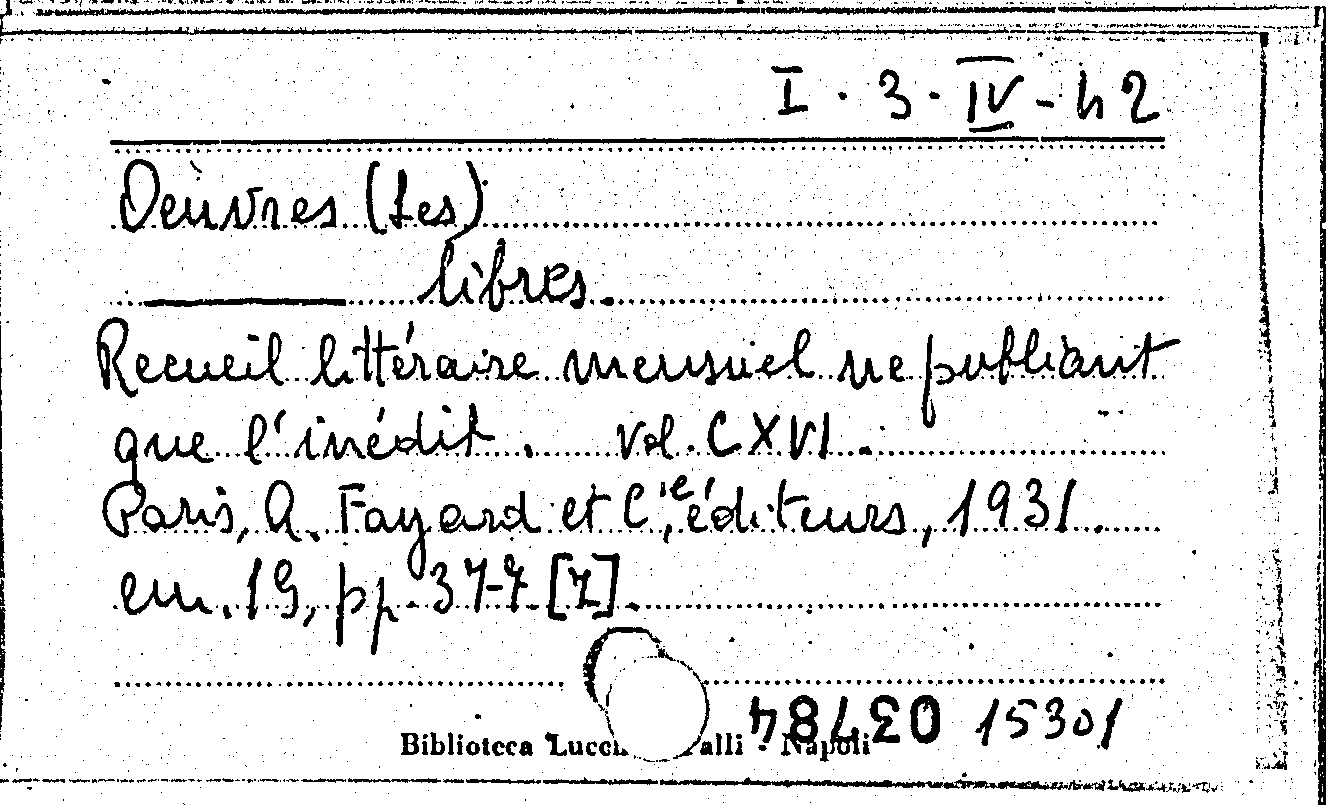 I · 3 · IV - 42
Oeuvres (Les)
——— libres.
Recueil littéraire mensuel ne publiant
que l'inédit. vol. CXVI.
Paris, A. Fayard et Cie, éditeurs, 1931.
cm. 19, pp. 377 [7].
03784 15301
Biblioteca - Napoli